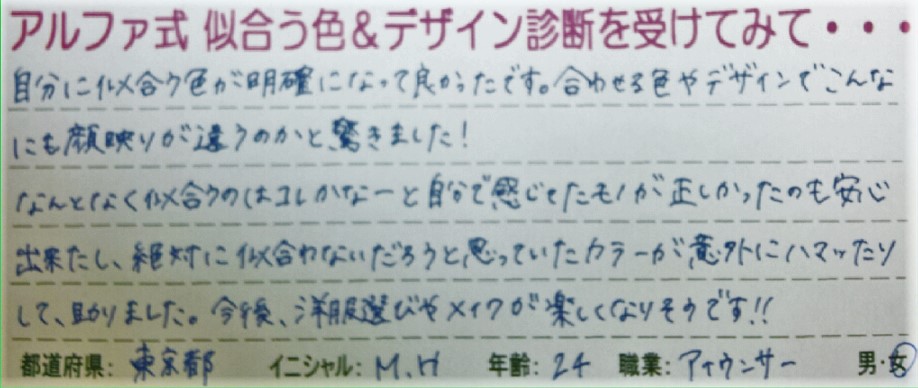 アルファ式 似合う色&デザイン診断を受けてみて・・・
自分に似合う色が明確になって良かったです。合わせる色やデザインでこんな
にも顔映りが違うのかと驚きました!
なんとなく似合うのはコレかなーと自分で感じてたモノが正しかったのも安心
出来たし、絶対に似合わないだろうと思っていたカラーが意外にハマッたり
して、助かりました。今後、洋服選びやメイクが楽しくなりそうです!!
都道府県: 東京都 イニシャル: M.H 年齢: 24 職業: アナウンサー 男・女